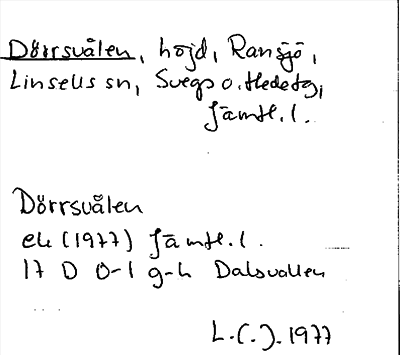 Dörrsvålen, höjd, Ransjö,
Linsells sn, Svegs o. Hedetg,
Jämtl. l.
Dörrsvålen
ek (1977) Jämtl. l.
17 D 0-1 g-h Dalsvallen
L. C. J. 1977